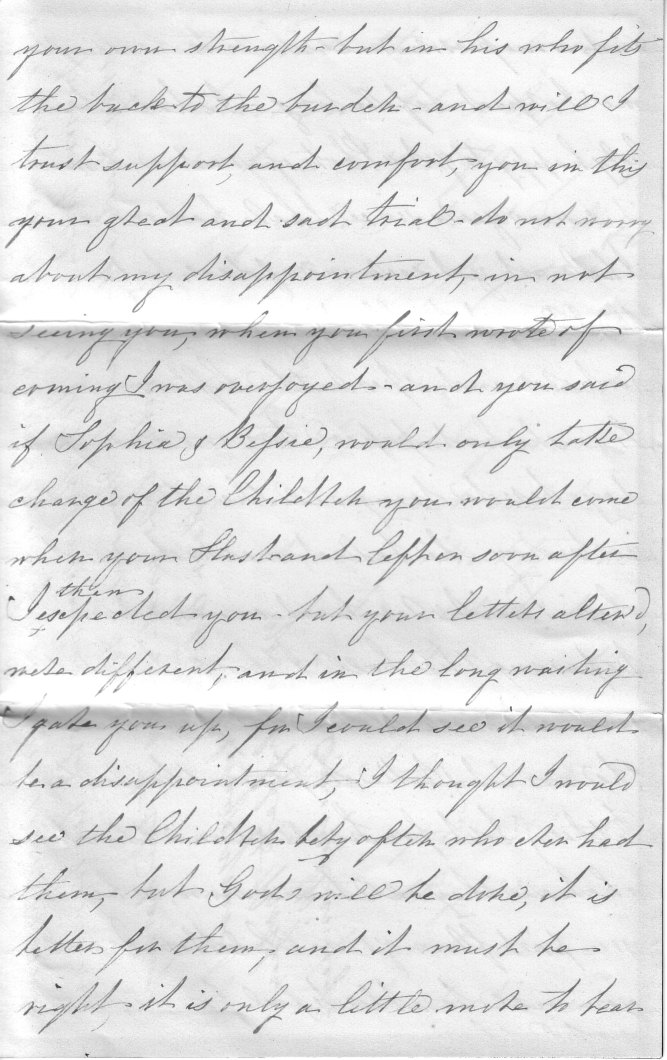 your own strength - but in his who fits
the back to the burden - and will I
trust support, and comfort, you in this
your great and sad trial - do not worry
about my disappointment, in not
seeing you, when you first wrote of
coming I was overjoyed - and you said
if Sophia & Bessie, would only take
charge of the Children you would come
when your Husband left or soon after
then
I expected you - but your letters alterd,
were different, and in the long waiting
I gave you up, for I could see it would
be a disappointment, I thought I would
see the Children very often who ever had
them, but Gods will be done, it is
better for them, and it must be
right, it is only a little more to bear